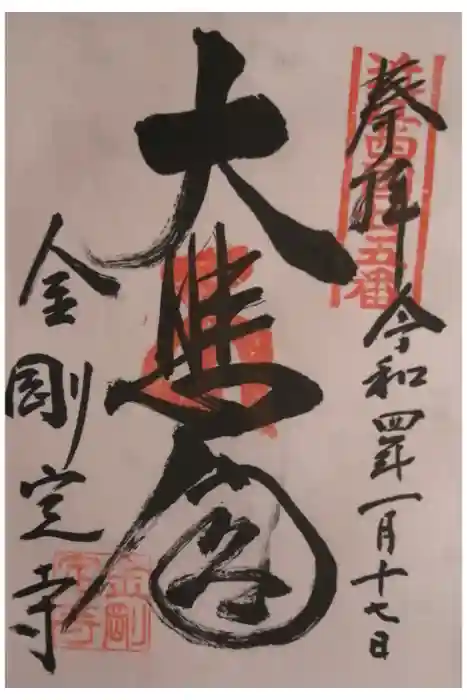 奉拝 令和四年一月十七日
五番
大悲閣
金剛定寺
金剛
定寺